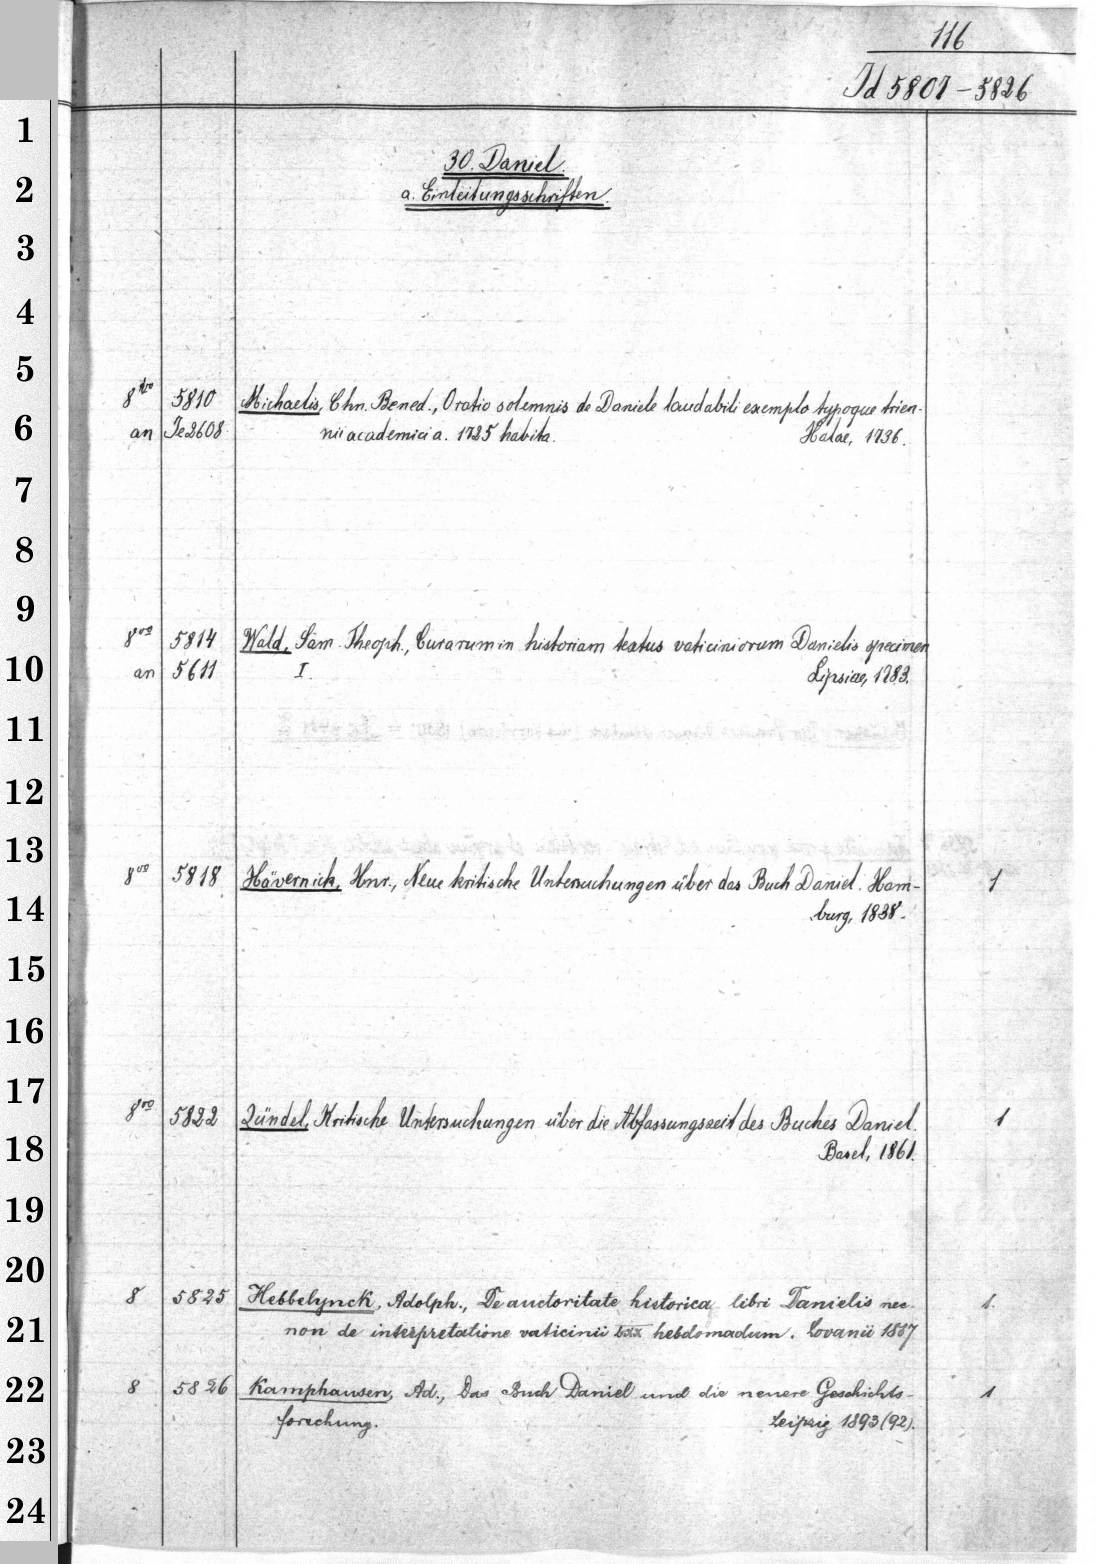 116
Id 5807 - 5826
1
2
3
4
5
6
7
8
9
10
11
12
13
14
15
16
17
18
19
20
21
22
23
24
30. Daniel.
a. Einleitungsschriften.
8vo 5810 Michaelis, Chn. Bened., Oratio solemnis de Daniele laudabili exemplo typoque trien-
an Ie2608 nii academici a. 1725 habita. Halae, 1736.
8vo 5814 Wald, Sam. Theoph., Curarum in historiam textus vaticiniorum Danielis specimen
an 5611 I. Lipsiae, 1783.
8vo 5818 Hävernick, Hnr., Neue kritische Untersuchungen über das Buch Daniel. Ham- 1
burg, 1838.
8vo 5822 Zündel, Kritische Untersuchungen über die Abfassungszeit des Buches Daniel. 1
Basel, 1861.
8 5825 Hebbelynck, Adolph., De auctoritate historica libri Danielis nec- 1.
non de interpretatione vaticinii LXX hebdomadum. Lovanii 1887
8 5826 Kamphausen, Ad., Das Buch Daniel und die neuere Geschichts- 1
forschung. Leipzig 1893 (92).